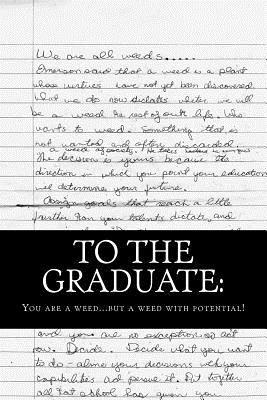 We are all weeds.....
Emerson said that a weed is a plant
whose virtues have not yet been discovered.
What we do now dictates whether we will
be a weed the rest of our life. Who
wants to weed. Something that is
not wanted and often discarded.
a weed
The decision is yours because the
direction in which you point your education
will determine your future.
Assign goals that reach a little
further than your talents dictate, and
TO THE
GRADUATE:
You are a weed...but a weed with potential!
and you are no exception so act
now. Decide. Decide what you want
to do - aline your decisions with your
capabilities and persue it. Put together
all that school has given you